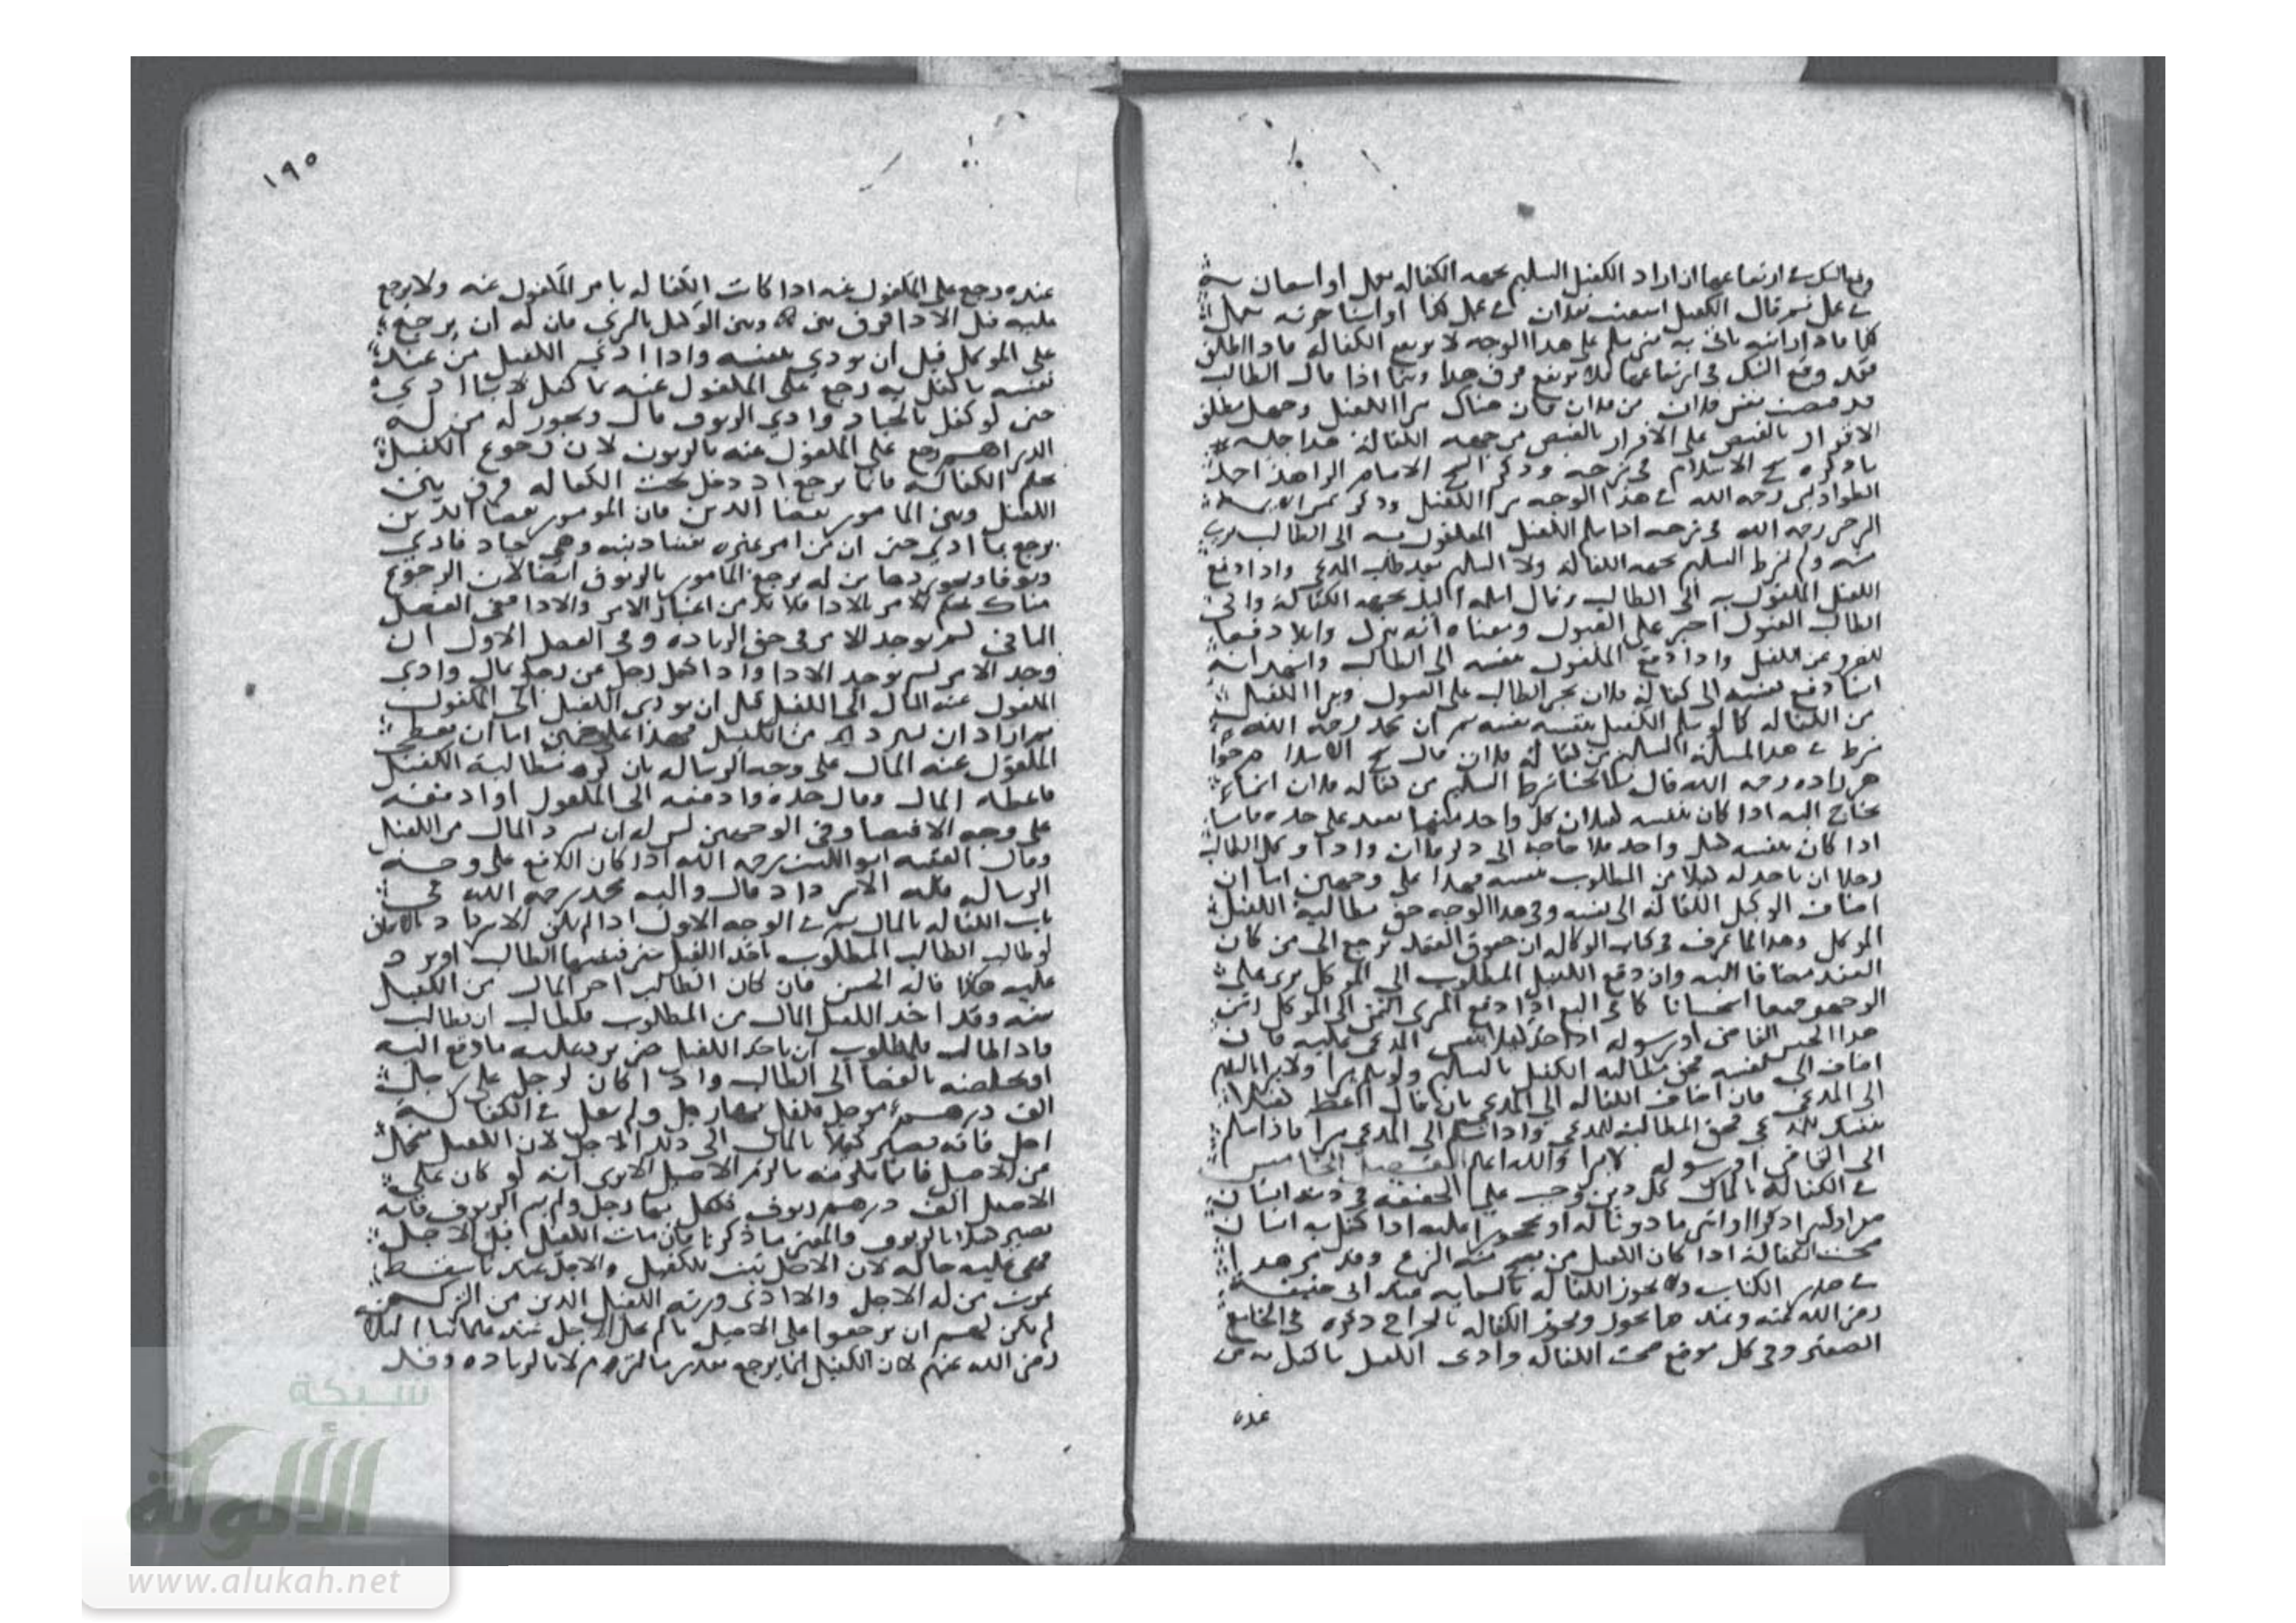 وقع الشك في ارتفاعها ان اراد الكفيل التسليم بجهة الكفالة
في عمل ثم قال الكفيل استعنت بفلان في عمل كذا او استاجرته
كذا على هذا الوجه لا يرتفع الكفالة فاذا اطلق
فقد وقع الشك في ارتفاعها فلا يرتفع فرق هذا وبينما اذا قال الطالب
قد قبضت نفس فلان من فلان فان هناك يبرأ الكفيل وحمل مطلق
الاقرار بالقبض على الاقرار بالقبض من جهة الكفالة هذا جملة
ما ذكره شيخ الاسلام في شرحه وذكر الشيخ الامام الزاهد احمد
الطواويسي رحمه الله في هذا الوجه يبرأ الكفيل وذكر شمس الايمة
السرخسي رحمه الله في شرحه اذا سلم الكفيل المكفول به الى الطالب برئ
منه ولم يشترط التسليم بجهة الكفالة ولا التسليم بعد طلب المدعي واذا دفع
الكفيل المكفول به الى الطالب وقال سلمته اليك بجهة الكفالة وابى
الطالب القبول اجبر على القبول ومعناه انه ينزل قابلا دفعا
للضرر عن الكفيل واذا دفع المكفول نفسه الى الطالب واشهد انه
انما دفع نفسه الى كفالة فلان يجبر الطالب على القبول ويبرأ الكفيل
من الكفالة كما لو سلم الكفيل بنفسه ثم ان محمد رحمه الله
شرط في هذا المسألة التسليم من كفالة فلان قال شيخ الاسلام
خواهر زاده رحمه الله قال مشايخنا شرط التسليم من كفالة فلان انما
يحتاج اليه اذا كان بنفسه كفيلان كل واحد منهما بعقد على حدة فاما
اذا كان بنفسه كفيل واحد فلا حاجة الى ذكر فلان واذا وكل الطالب
رجلا ان ياخذ له كفيلا من المطلوب بنفسه فهذا على وجهين اما ان
اضاف الوكيل الكفالة الى نفسه وفي هذا الوجه حق مطالبة الكفيل
الموكل وهذا لما عرف في كتاب الوكالة ان حقوق العقد ترجع الى من كان
العقد مضافا اليه وان دفع الكفيل المطلوب الى الموكل برئ على
الوجهين جميعا استحسانا كما في البيع اذا دفع المشتري الثمن الى الموكل
هذا الجنس القاضي او رسوله اذا اخذ كفيلا بنفس المدعى عليه فان
اضاف الى نفسه فحق مطالبة الكفيل بالتسليم
الى المدعي فان اضاف الكفالة الى المدعي بان قال اعط كفيلا
بنفسك للمدعي فحق المطالبة للمدعي واذا سلم الى المدعي يبرأ فاذا سلم
الى القاضي او رسوله لا يبرأ والله اعلم الفصل الخامس
في الكفالة بالمال كل دين وجب على الحقيقة في ذمة انسان
حرا او ذكرا او انثى ماذونا له او محجورا عليه اذا كفل به انسان
صحت الكفالة اذا كان الكفيل من يصح منه التبرع وقد مر هذا
في صدر الكتاب ولا يجوز الكفالة بالسعاية عند ابي حنيفة
رضي الله عنه وعندهما يجوز ويجوز الكفالة بالخراج ذكره في الجامع
الصغير وفي كل موضع صحت الكفالة وادى الكفيل ما كفل به من
عنده
١٩٥
عنده رجع على المكفول عنه اذا كانت الكفالة بامر المكفول عنه ولا يرجع
عليه قبل الادا فرق بين هذا وبين الوكيل بالشري فان له ان يرجع
على الموكل قبل ان يودي بنفسه واذا ادى الكفيل من عند
نفسه ما كفل به رجع على المكفول عنه بما كفل لا بما ادى
حتى لو كفل بالجياد وادى الزيوف قال وتجوز له من له
الدراهم رجع على المكفول عنه بالزيوف لان رجوع الكفيل
بحكم الكفالة فانما يرجع ا د دخل تحت الكفالة فرق بين
الكفيل وبين المامور بقضا الدين فان المومور بقضا الدين
يرجع بما ادى حتى ان من امر غيره بقضا دينه وهي جياد فادى
زيوفا وتجوز بها من له يرجع المامور بالزيوف ايضا لان الرجوع
هناك بحكم الامر بالادا فلا بد من اعتبار الامر والادا ففي الفصل
الثاني لم يوجد الامر في حق الزيادة وفي الفصل الاول ان
وجد الامر لم يوجد الادا واذا كفل رجل عن رجل بمال وادى
المكفول عنه المال الى الكفيل قبل ان يودي الكفيل الى المكفول
ثم اراد ان يسترده من الكفيل فهذا على وجهين اما ان يعطي
المكفول عنه المال على وجه الرسالة بان لزم مطالبة الكفيل
فاعطاه المال وقال خذه وادفعه الى المكفول او ادفعه
على وجه الاقتضا وفي الوجهين ليس له ان يسترد المال من الكفيل
وقال الفقيه ابو الليث رحمه الله اذا كان الدفع على وجه
الرسالة فله الاسترداد قال واليه محمد رحمه الله في
باب الكفالة بالمال
لو طالب الطالب المطلوب ياخذ الكفيل حتى
عليه هكذا قاله الحسن فان كان الطالب اخر المال عن الكفيل
سنة وقد اخذ الكفيل المال من المطلوب فللطالب ان يطالب
فاذا طالب فللمطلوب ان ياخذ الكفيل حتى يرد عليه ما دفع اليه
او يخلصه بالقضا الى الطالب واذا كان لرجل على رجل
الف درهم موجل فكفل بها رجل ولم يقل في الكفالة
اجل فانه يصير كفيلا بالمال الى ذلك الاجل لان الكفيل يتحمل
عن الاصيل فانما يلزمه ما لزم الاصيل الا ترى انه لو كان على
الاصيل الف درهم زيوف فكفل بها رجل ولم يسم الزيوف فانه
يصير كفيلا بالزيوف والمعنى ما ذكرنا فان مات الكفيل قبل الاجل
فهي عليه حالة لان الاجل ثبت للكفيل والاجل عندنا يسقط
بموت من له الاجل واذا ادى ورثة الكفيل الدين من التركة
لم يكن لهم ان يرجعوا على الاصيل ما لم يحل الاجل عند علمائنا الثلاثة
رضي الله عنهم لان الكفيل انما يرجع بقدر ما التزم لا بالزيادة وقد
شبكة
الألوكة
www.alukah.net